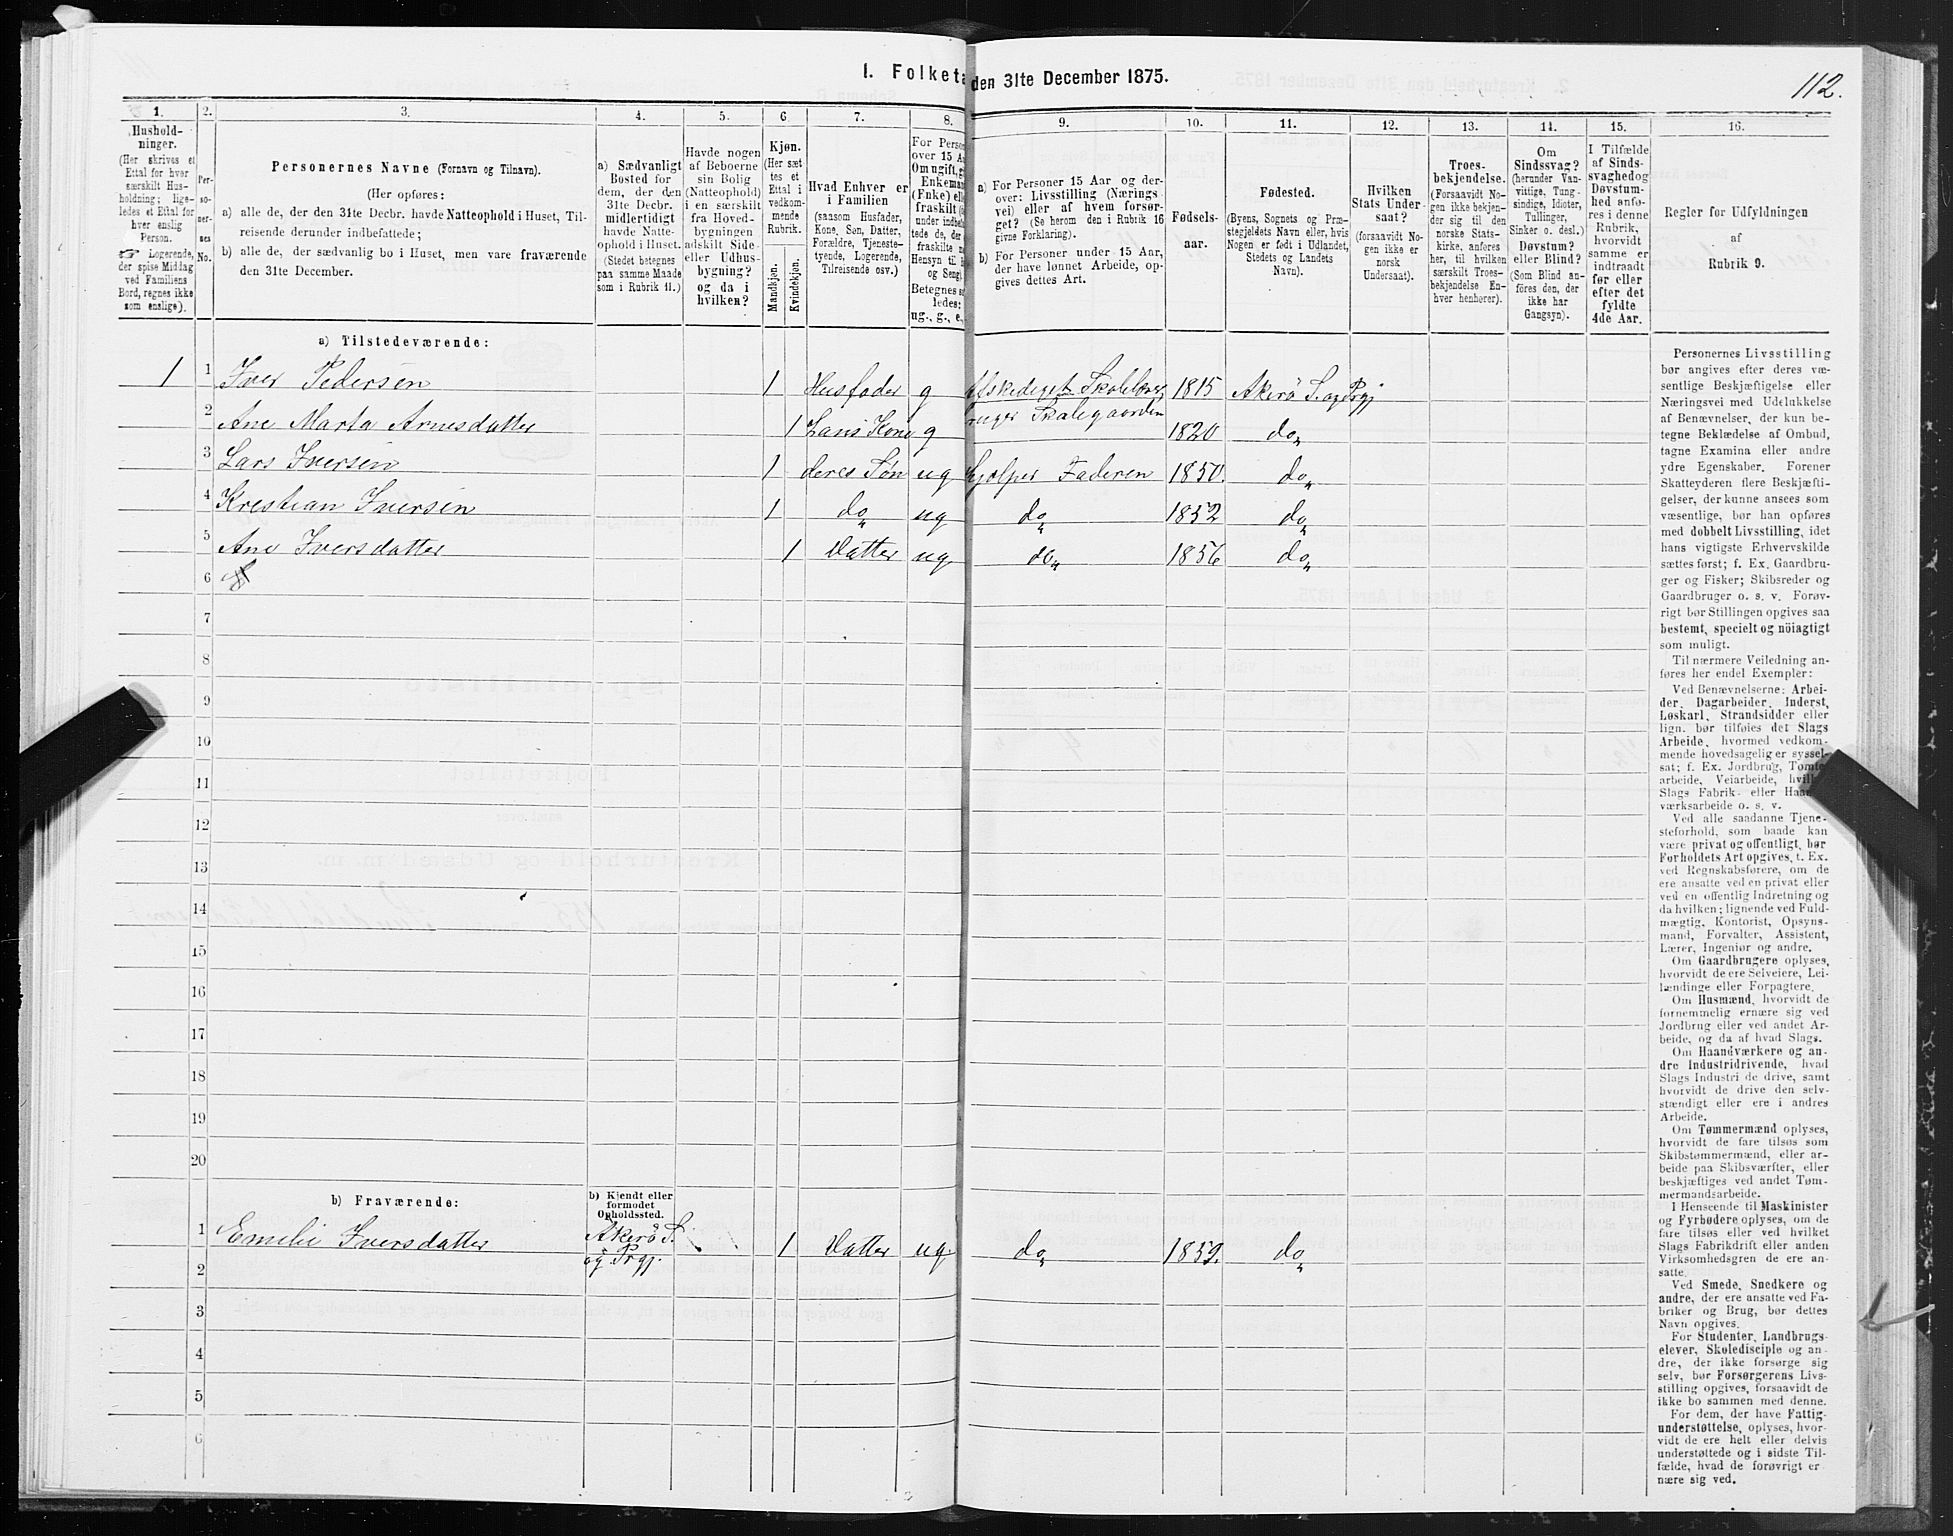 112.
1. Folketa den 31te December 1875.
1. 2. 3. 4. 5. 6. 7. 8. 9. 10. 11. 12. 13. 14. 15. 16.
Hushold-
ninger.
(Her skrives et
Ettal for hver
særskilt Hus-
holdning; lige-
ledes et Ettal for
hver enslig
Person.
Logerende,
der spise Middag
ved Familiens
Bord, regnes ikke
som enslige).
Per-
so-
ner-
nes
No.
Personernes Navne (Fornavn og Tilnavn).
(Her opføres:
a) alle de, der den 31te Decbr. havde Natteophold i Huset, Til-
reisende derunder indbefattede;
b) alle de, der sædvanlig bo i Huset, men vare fraværende
den 31te December.
a) Sædvanligt
Bosted for
dem, der den
31te Decbr.
midlertidigt
havde Natte-
ophold i Huset.
(Stedet betegnes
paa samme Maade
som i Rubrik 11.)
Havde nogen
af Beboerne
sin Bolig
(Natteophold)
i en særskilt
fra Hoved-
bygningen
adskilt Side-
eller Udhus-
bygning?
og da i
hvilken?
Kjøn.
(Her sæt-
tes et
Ettal i
vedkom-
mende
Rubrik.
Mandkjøn.
Kvindekjøn.
Hvad Enhver er
i Familien
(saasom Husfader,
Kone, Søn, Datter,
Forældre, Tjeneste-
tyende, Logerende,
Tilreisende osv.)
For Person
over 15 A
Om ugift, g
Enkemand
(Enke) elle
fraskilt
under indbefat
tede de, der
fraskilte
Hensyn til
og Seng)
Betegnes s
ledes:
ug., g., e.,
a) For Personer 15 Aar og der-
over: Livsstilling (Nærings-
vei) eller af hvem forsør-
get? (Se herom den i Rubrik 16
givne Forklaring).
b) For Personer under 15 Aar,
der have lønnet Arbeide, op-
gives dettes Art.
Fødsels-
aar.
Fødested.
(Byens, Sognets og Præ-
stegjeldets Navn eller, hvis
Nogen er født i Udlandet,
Stedets og Landets
Navn).
Hvilken
Stats Under-
saat?
(forsaavidt No-
gen ikke er
norsk
Undersaat).
Troes-
bekjendelse.
(Forsaavidt No-
gen ikke bekjen-
der sig til den
norske Stats-
kirke, anføres
her, til hvilken
særskilt Troes-
bekjendelse En-
hver henhører).
Om
Sindssvag?
(herunder Van-
vittige, Tung-
sindige, Idioter,
Tullinger,
Sinker o. desl.)
Døvstum?
eller Blind?
(Som Blind an-
føres den, der
ikke har
Gangsyn).
I Tilfælde
af Sinds-
svaghedog
Døvstum-
hed anfø-
res i denne
Rubrik,
hvorvidt
samme er
indtraadt
før eller
efter det
fyldte
4de Aar.
Regler for Udfyldningen
af
Rubrik 9.
a) Tilstedeværende:
1 1 Iver Pedersen 1 Husfader g Afskediget Skolelærer 1815 Akerö S. og Prgj
2 Ane Marta Arnesdatter 1 Hans Kone g bruger Skolegaarden 1820 do„
3 Lars Iversen 1 deres Søn ug hjælper Faderen 1850. do„
4 Krestian Iversen 1 do„ ug do„ 1852 do„
5 Ane Iversdatter 1 Datter ug do„ 1856 do„
6
7
8
9
10
11
12
13
14
15
16
17
18
19
20
b) Fraværende:
b) Kjendt eller
formodet
Opholdssted.
1 Emelie Iversdatter Akerö S. 1 Datter ug. do„ 1859. do„
2 og Prgj.
3
4
5
6
Personernes Livsstilling
bør angives efter deres væ-
sentlige Beskjæftigelse eller
Næringsvei med Udelukkelse
af Benævnelser, der kun be-
tegne Beklædelse af Ombud,
tagne Examina eller andre
ydre Egenskaber. Forener
Skatteyderen flere Beskjæfti-
gelser, der kunne ansees som
væsentlige, bør han opføres
med dobbelt Livsstilling, idet
hans vigtigste Erhvervskilde
sættes først; f. Ex. Gaardbru-
ger og Fisker; Skibsreder og
Gaardbruger o. s. v. Forøv-
rigt bør Stillingen opgives saa
bestemt, specielt og nöiagtigt
som muligt.
Til nærmere Veiledning an-
føres her endel Exempler:
Ved Benævnelserne: Arbei-
der, Dagarbeider, Inderst,
Løskarl, Strandsidder eller
lign. bør tilføies det Slags
Arbeide, hvormed vedkom-
mende hovedsagelig er syssel-
sat; f. Ex. Jordbrug, Tømte-
arbeide, Veiarbeide, hvilk
Slags Fabrik- eller Haand-
værksarbeide o. s. v.
Ved alle saadanne Tjene-
steforhold, som baade kan
være privat og offentligt, bør
Forholdets Art opgives, t. Ex.
ved Regnskabsførere, om de
ere ansatte ved en privat eller
ved en offentlig Indretning og
da hvilken; lignende ved Fuld-
mægtig, Kontorist, Opsyns-
mand, Forvalter, Assistent,
Lærer, Ingeniør og andre.
Om Gaardbrugere oplyses,
hvorvidt de ere Selveiere, Lei-
lændinge eller Forpagtere.
Om Husmænd, hvorvidt de
fornemmelig ernære sig ved
Jordbrug eller ved andet Ar-
beide, og da af hvad Slags.
Om Haandværkere og an-
dre Industridrivende, hvad
Slags Industri de drive, samt
hvorvidt de drive den selv-
stændigt eller ere i andres
Arbeide.
Om Tømmermænd oplyses,
hvorvidt de fare tilsøs som
Skibstømmermænd, eller ar-
beide paa Skibsværfter, eller
beskjæftiges ved andet Tøm-
mermandsarbeide.
I Henseende til Maskinister
og Fyrbødere oplyses, om de
fare tilsøs eller ved hvilket
Slags Fabrikdrift eller anden
Virksomhedsgren de ere an-
satte.
Ved Smede, Snedkere og
andre, der ere ansatte ved Fa-
briker og Brug, bør dettes
Navn opgives.
For Studenter, Landbrugs-
elever, Skoledisciple og an-
dre, der ikke forsørge sig
selv, bør Forsørgerens Livs-
stilling opgives, forsaavidt de
ikke bo sammen med denne.
For dem, der have Fattig-
understøttelse, oplyses, hvor-
vidt de ere helt eller delvis
understøttede og i sidste Til-
fælde, hvad de forøvrigt er-
nære sig ved.